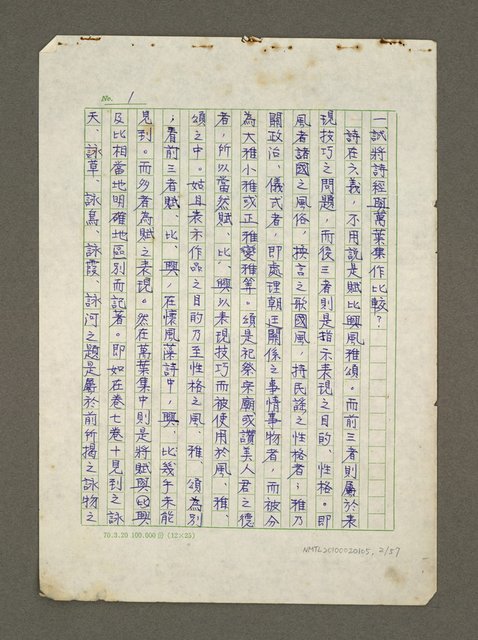 No. 1
一試將詩經與萬葉集作比較？
詩在六義，不用說是賦比興風雅頌。而前三者則屬於表
現技巧之問題，而後三者則是指示表現之目的、性格。即
風者諸國之風俗，換言之歌國風，持民謠之性格者；雅乃
關政治、儀式者，即處理朝廷關係之事情事物者，而被分
為大雅小雅或正雅變雅等。頌是祀祭宗廟或讚美人君之德
者，所以當然賦、比、興以表現技巧而被使用於風、雅、
頌之中。姑且表示作品之目的乃至性格之風、雅、頌為別
；看前三者賦、比、興，在懷風藻詩中，興、比幾乎未能
見到。而多者為賦之表現。然在萬葉集中則是將賦與興
及比相當地明確地區別而記著。即如在卷七卷十見到之詠
天、詠草、詠鳥、詠霞、詠河之題是屬於前所揭之詠物之
70.3.20 100.000 (12×25)
NMTL20100020105, 2/57